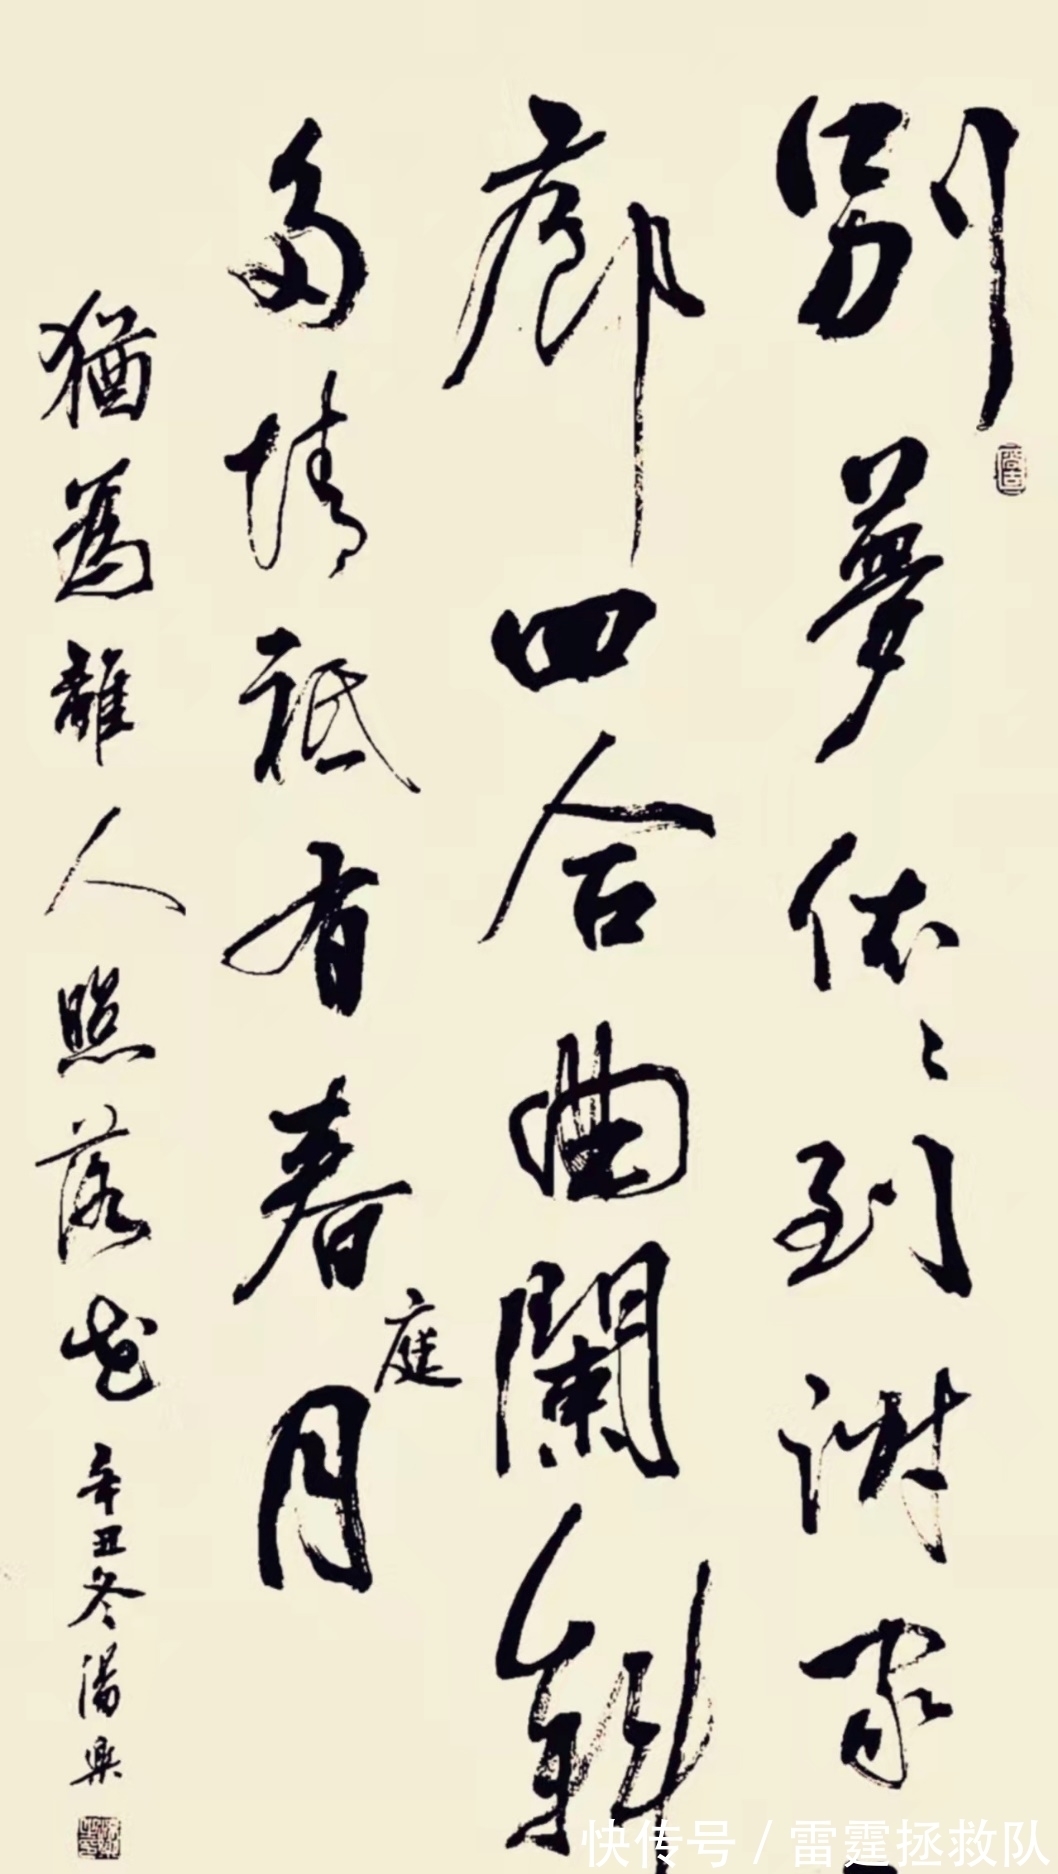 別夢依〻到謝家
廊回合曲闌斜
多情祗有春庭月
猶爲離人照落花 辛丑冬湯
快传号 / 雷霆拯救队